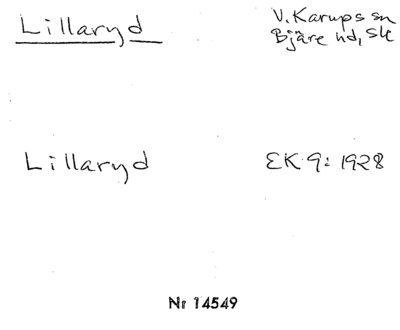 Lillaryd
V. Karups sn
Bjäre hd, Sk
Lillaryd
EK 9: 1928
Nr 14549